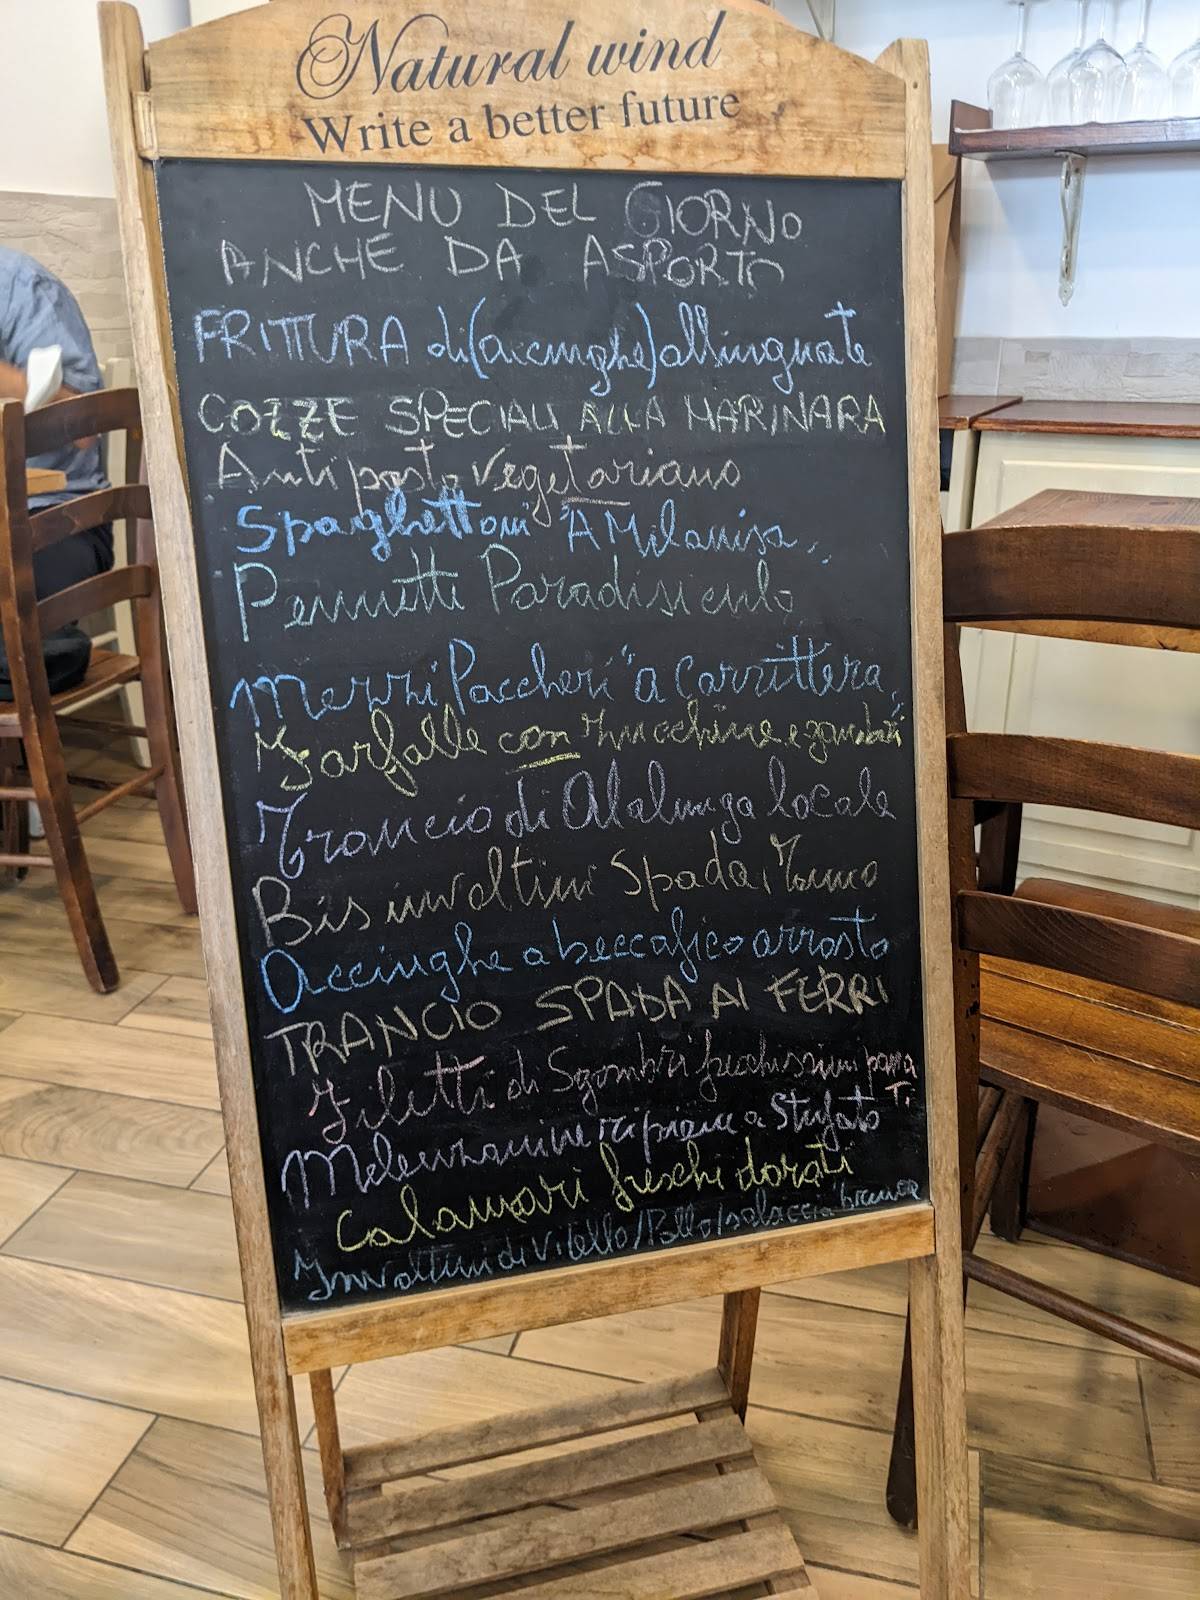 Natural wind
Write a better future
MENU DEL GIORNO
ANCHE DA ASPORTO
FRITTURA di (accinghe) allinguate
COZZE SPECIALI ALLA MARINARA
Antipasto Vegetariano
Spaghettoni "A Milanisa"
Pennette Paradisiculo
Mezzi Paccheri "a Carrittera"
Farfalle con zucchine e gamberi
Trancio di Alalunga locale
Bis involtini Spada, Tonno
Accinghe a beccafico arrosto
TRANCIO SPADA AI FERRI
Filetti di Sgombri freschissimi
Melenzanine ripiene a Stufato
Calamari freschi dorati
Involtini di Vitello/Pollo/salsiccia